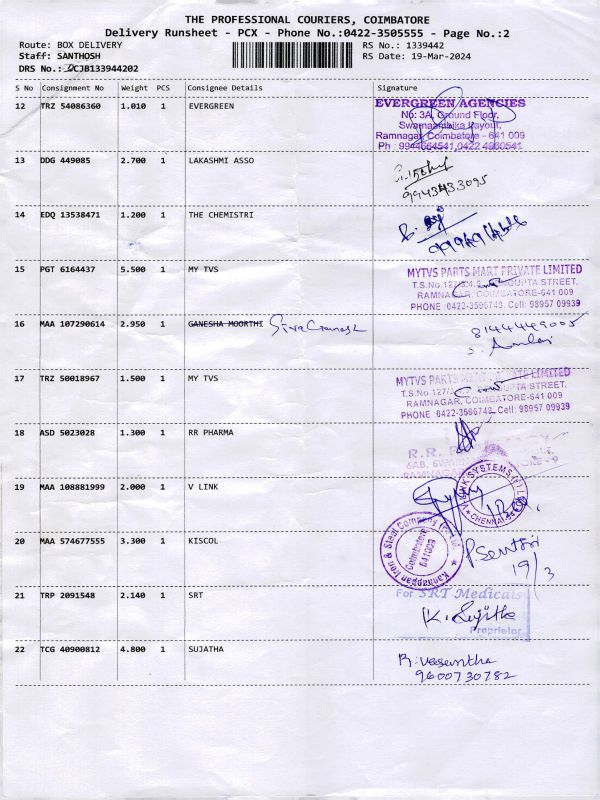 THE PROFESSIONAL COURIERS, COIMBATORE
Delivery Runsheet - PCX - Phone No.:0422-3505555 - Page No.:2
Route: BOX DELIVERY
RS No.: 1339442
Staff: SANTHOSH
RS Date: 19-Mar-2024
DRS No.: DCJB133944202
S No Consignment No Weight PCS Consignee Details Signature
12 TRZ 54086360 1.010 1 EVERGREEN
EVERGREEN AGENCIES
No: 3A, Ground Floor,
Swarnambika Layout,
Ramnagar, Coimbatore - 641 009
Ph : 9944664541,0422 4960541
13 DDG 449085 2.700 1 LAKASHMI ASSO
9943433095
14 EDQ 13538471 1.200 1 THE CHEMISTRI
15 PGT 6164437 5.500 1 MY TVS
MYTVS PARTS MART PRIVATE LIMITED
T.S.No. GUPTA STREET,
RAMNAGAR, COIMBATORE-641 009
PHONE :0422-3596748, Cell: 98957 09939
16 MAA 107290614 2.950 1 GANESHA MOORTHI Siva Ganesh
8144449005
17 TRZ 50018967 1.500 1 MY TVS
MYTVS PARTS MART PRIVATE LIMITED
T.S.No GUPTA STREET,
RAMNAGAR, COIMBATORE-641 009
PHONE :0422-3596748, Cell: 98957 09939
18 ASD 5023028 1.300 1 RR PHARMA
R.R.
RAMNAGAR
19 MAA 108881999 2.000 1 V LINK
SYSTEMS
CHENNAI
20 MAA 574677555 3.300 1 KISCOL
Kannappan Iron & Steel Company (P) Ltd
Coimbatore
641009
P. Senthil
19/3
21 TRP 2091548 2.140 1 SRT
For SRT Medicals
K. Sujitha
Proprietor
22 TCG 40900812 4.800 1 SUJATHA
R. Vasantha
9600730782